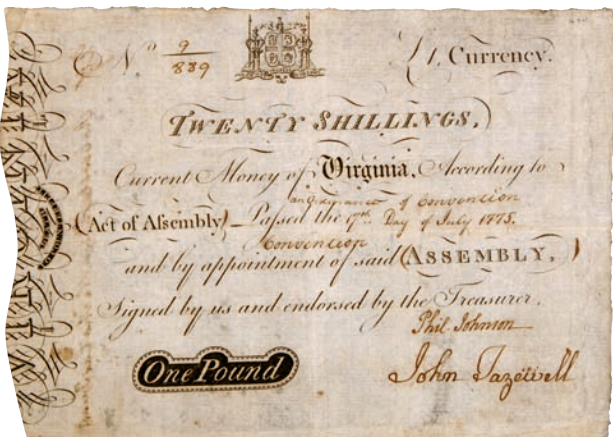 No 9/889
£1, Currency.
TWENTY SHILLINGS,
Current Money of Virginia, According to
an Ordinance of Convention
(Act of Assembly) Passed the 17th Day of July 1775.
Convention
and by appointment of said (ASSEMBLY,)
Signed by us and endorsed by the Treasurer.
Phil Johnson
One Pound
John Tazewell